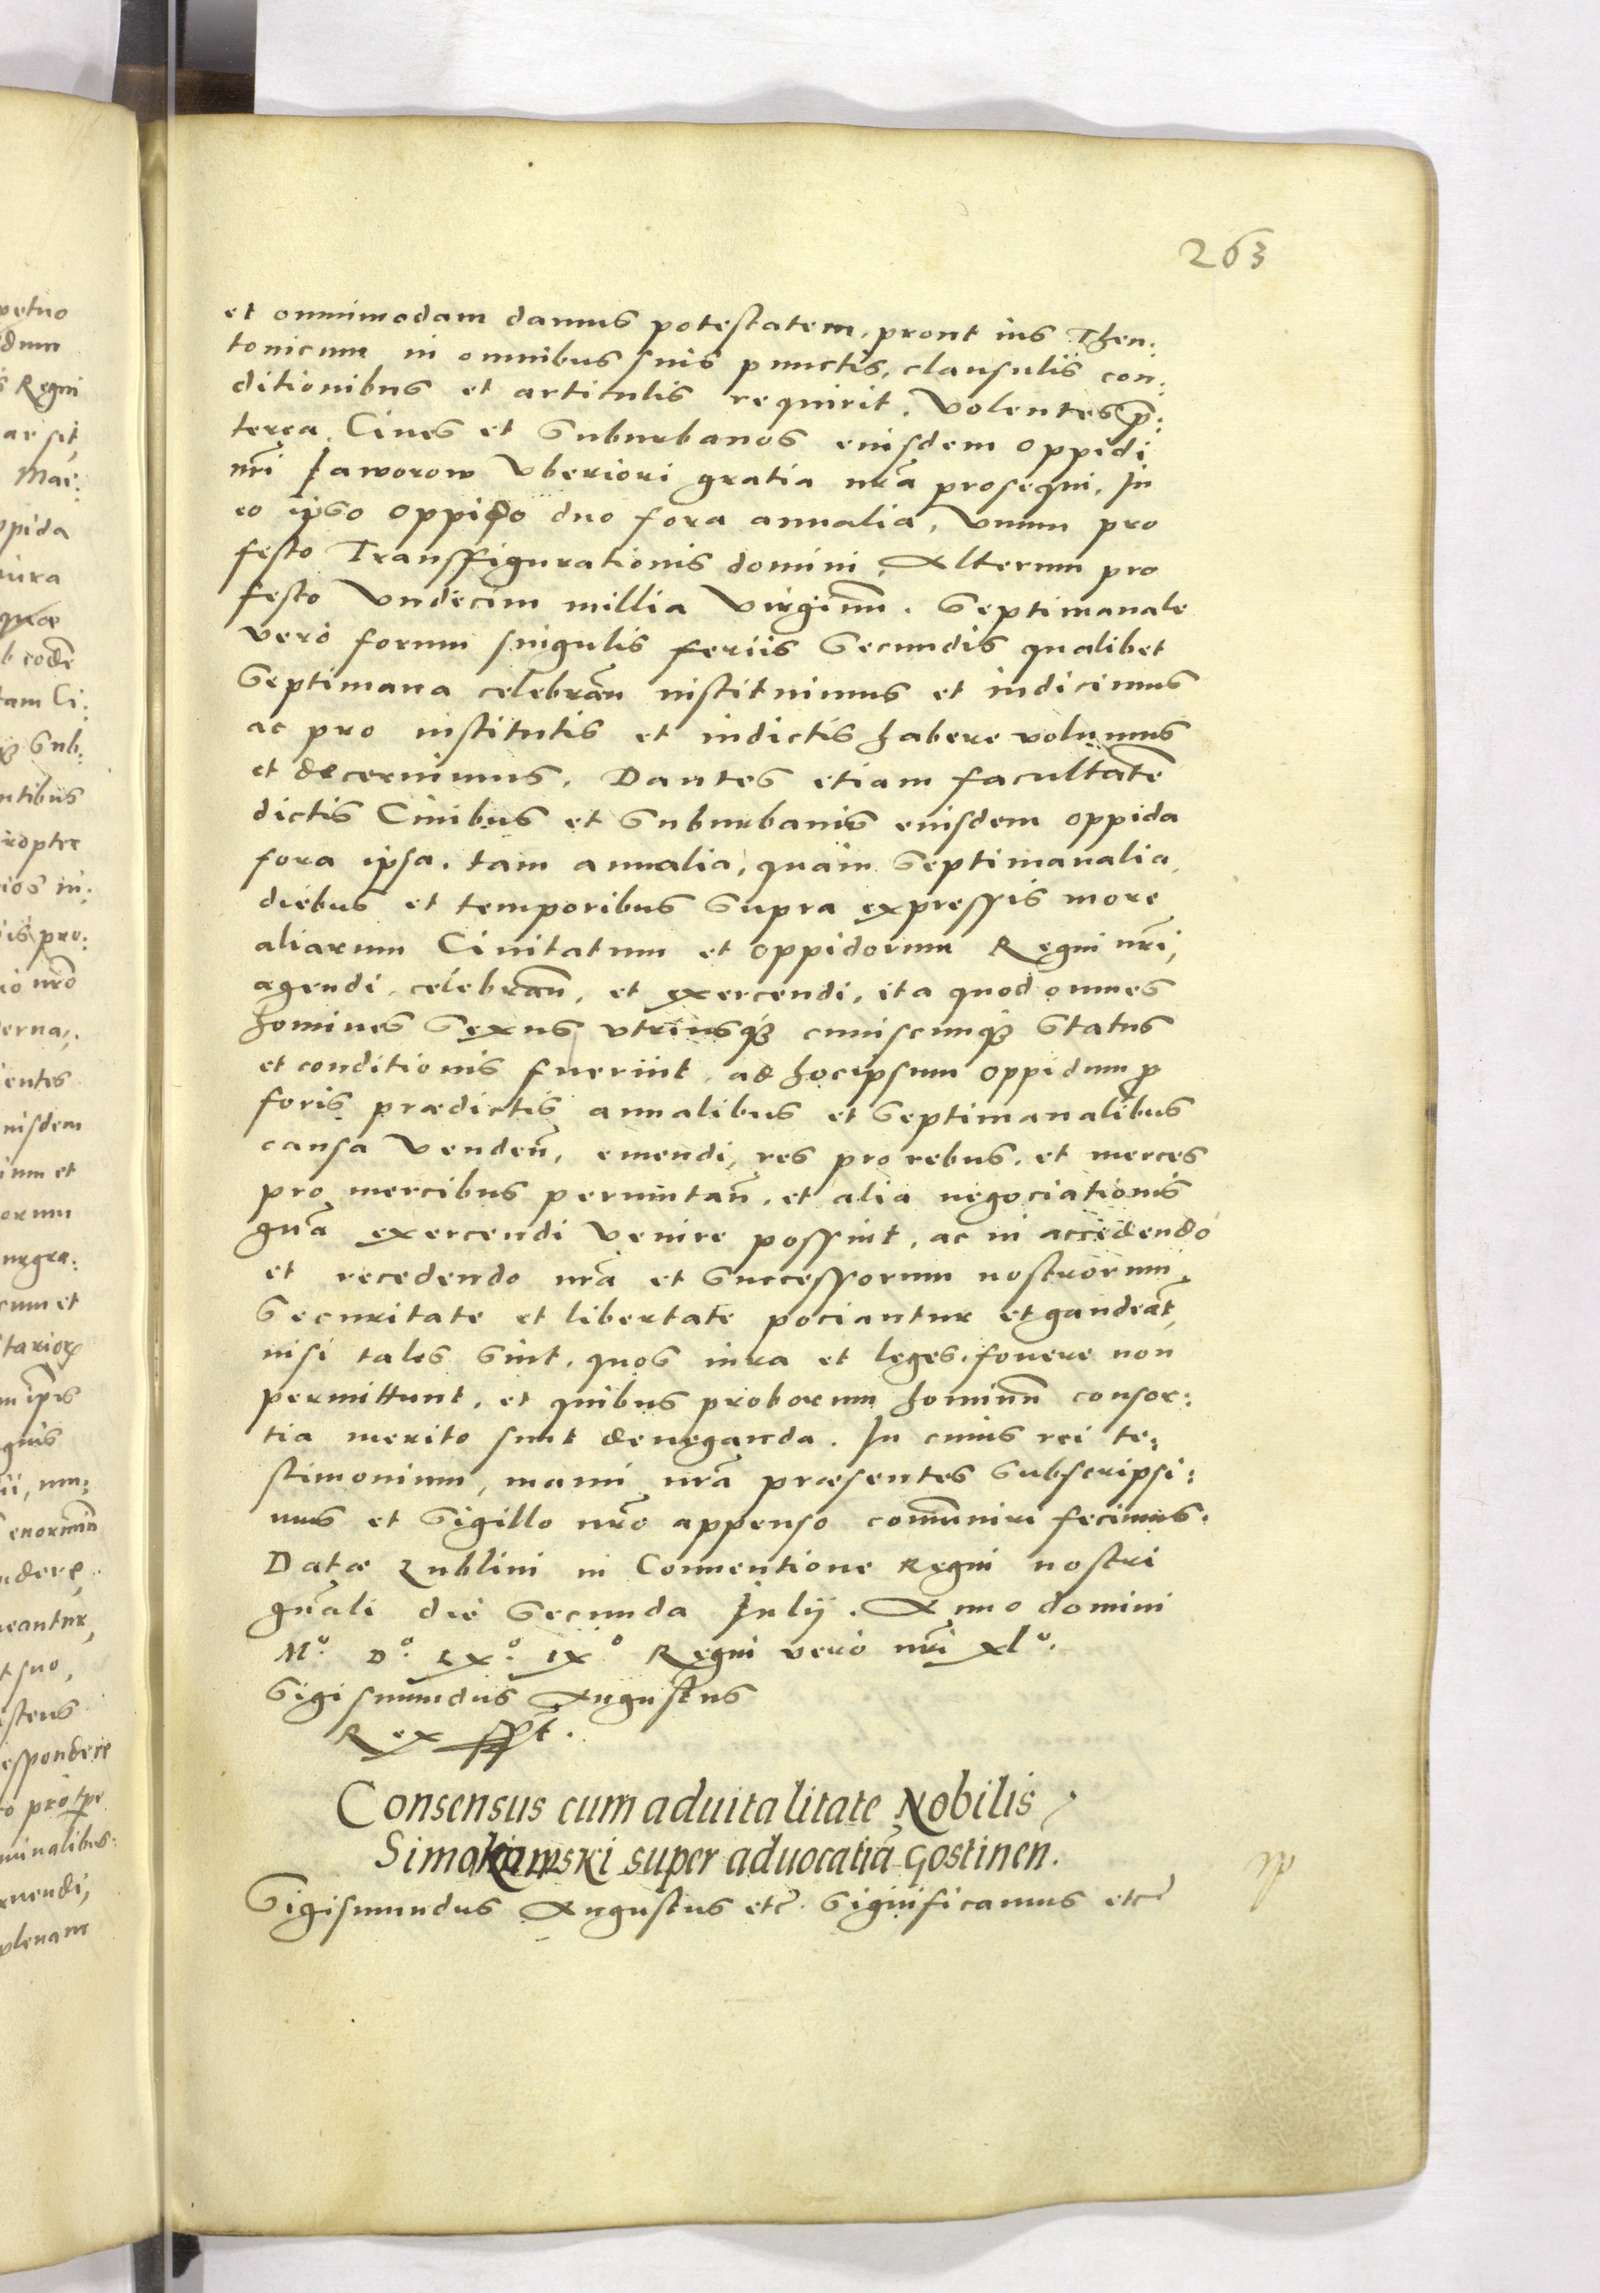 263
et omnimodam damus potestatem, prout ius Theu:
tonicum in omnibus suis punctis, clausulis con:
ditionibus et articulis requirit. Volentes p̄:
terea Ciues et Suburbanos eiusdem oppidi
nr̄i Jaworow vberiori gratia nr̄a prosequi, In
eo ipso oppido duo fora annalia, Vnum pro
festo Transffigurationis domini, Alterum pro
festo Vndecim millia Virginū. Septimanale
verò forum singulis feriis Secundis qualibet
Septimana celebrāń instituimus et indicimus
ac pro institutis et indictis habere volumus
et decernimus. Dantes etiam facultatē
dictis Ciuibus et Suburbanis eiusdem oppida
fora ipsa, tam annalia, quàm Septimanalia,
diebus et temporibus Supra expressis more
aliarum Ciuitatum et oppidorum Regni nr̄i,
agendi, celebrāń, et exercendi, ita quod omnes
homines Sexus vtriusq3 cuiuscunq3 Status
et conditionis fuerint, ad hoc ipsum oppidum p̱
foris prædictis annalibus et Septimanalibus
causa Vendeń, emendi, res pro rebus, et merces
pro mercibus permutań, et alia negociationis
gńa exercendi Venire possint, ac in accedendo
et recedendo nr̄a et Successorum nostrorum
Securitate et libertate pociantur et gaudeāt,
nisi tales Sint, quos iura et leges fouere non
permittunt, et quibus proborum hominū consor:
tia merito sunt deneganda. In cuius rei te:
stimonium, manu nr̄a præsentes Subscripsi:
mus et Sigillo nr̄o appenso com̄uniri fecimus.
Datæ Lublini in Conuentione Regni nostri
gńali die Secunda Julij. Anno domini
Mº. Dº. LXº. IXº Regni verò nr̄i xlº.
Sigismundus Augustus
Rex sspt̄.
Consensus cum aduitalitate Nobilis
super aduocatiā Gostinen.
Sigismundus Augustus etc̄. Significamus etc̄